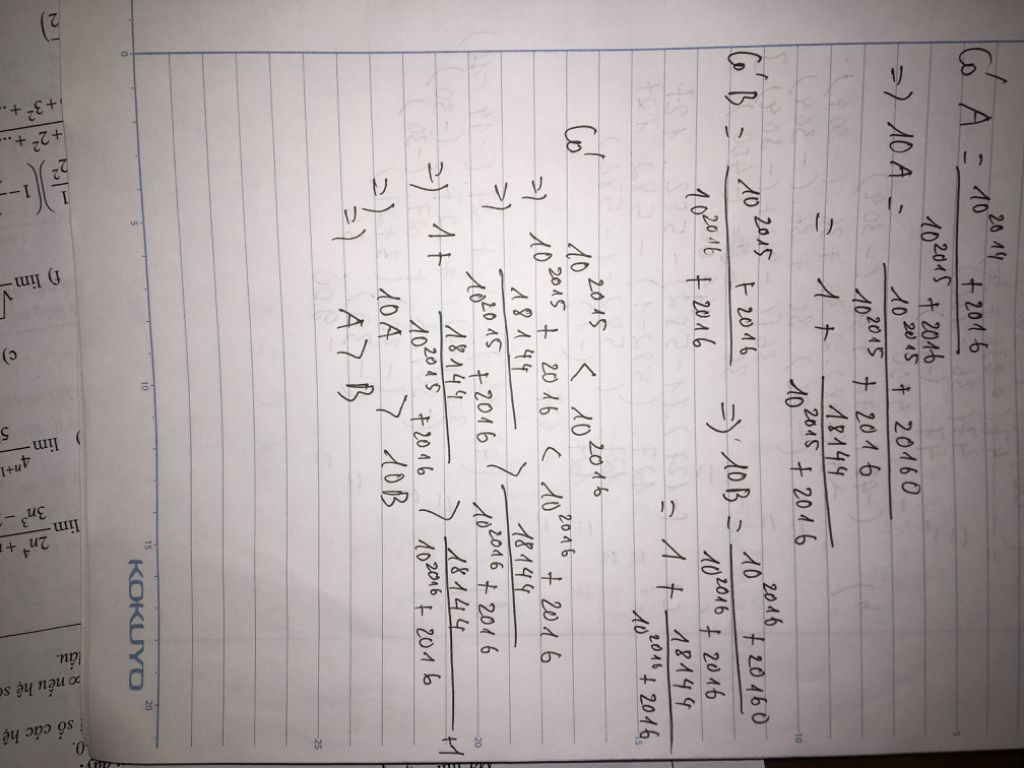 Có A = \frac{10^{2014} + 2016}{10^{2015} + 2016}
=) 10A = \frac{10^{2015} + 20160}{10^{2015} + 2016}
= 1 + \frac{18144}{10^{2015} + 2016}
Có B = \frac{10^{2015} + 2016}{10^{2016} + 2016} =) 10B = \frac{10^{2016} + 20160}{10^{2016} + 2016}
= 1 + \frac{18144}{10^{2016} + 2016}
Có 10^{2015} < 10^{2016}
=) 10^{2015} + 2016 < 10^{2016} + 2016
=) \frac{18144}{10^{2015} + 2016} > \frac{18144}{10^{2016} + 2016}
=) 1 + \frac{18144}{10^{2015} + 2016} > \frac{18144}{10^{2016} + 2016} +1
=) 10A > 10B
=) A > B
0 5 10 15 20
5 10 15 20 25
KOKUYO
+ 3² + ...
+ 2² + ...
\frac{1}{2²})(1 -
f) lim √
c)
) lim \frac{4^{n+1}}{5}
lim \frac{2n^4 +}{3n^3 -}
dấu.
∞ nếu hệ số
số các hệ